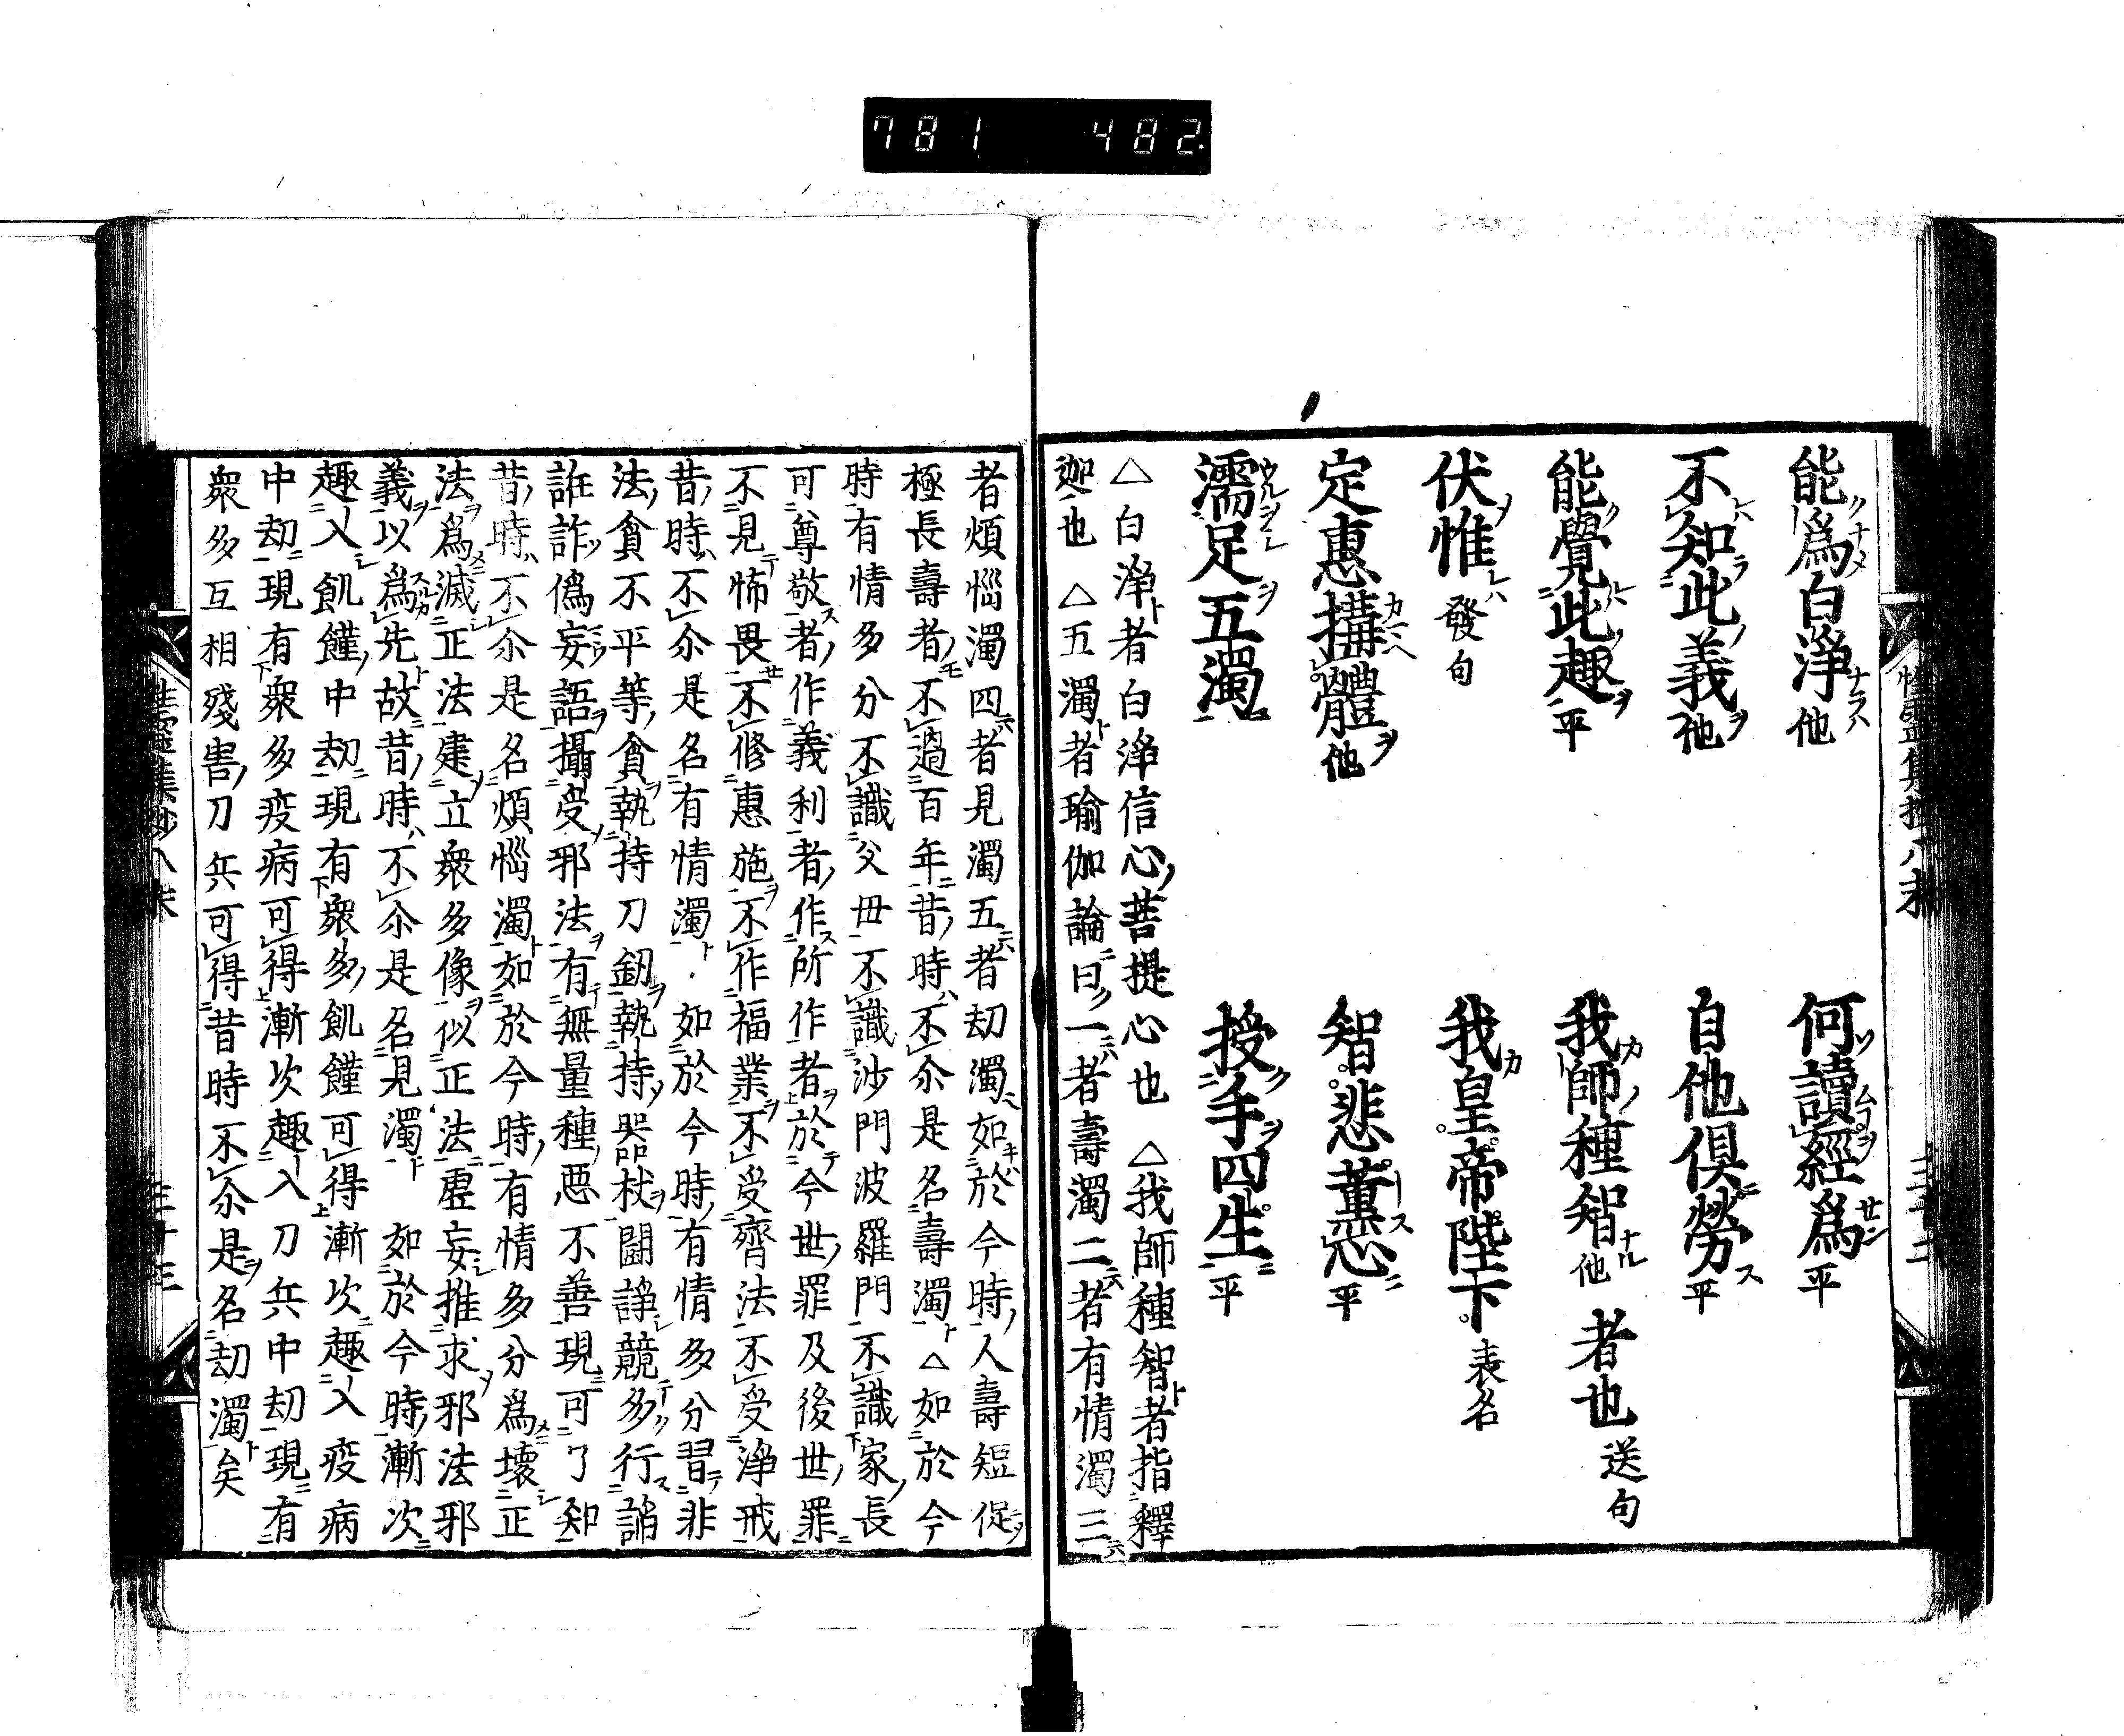 781 482
能爲白淨他 何讀經爲平
不知此義他 自他倶勞平
能覺此趣平 我師種智他 者也送句
伏惟發句 我皇帝陛下表名
定惠搆體他 智悲薫惌平
濡足五濁 授手四生平
△白淨者白淨信心菩提心也 △我師種智者指釋
迦也 △五濁者瑜伽論曰一者壽濁二者有情濁三
者煩惱濁四者見濁五者刧濁如於今時人壽短促
極長壽者不過百年昔時不尒是名壽濁△如於今
時有情多分不識父毋不識沙門波羅門不識家長
可尊敬者作義利者作所作者於今世罪及後世罪
不見怖畏不修惠施不作福業不受齊法不受淨戒
昔時不尒是名有情濁 如於今時有情多分習非
法貪不平等貪執持刀釼執持器杖鬪諍競多行諂
誑詐僞妄語攝受邪法有無量種惡不善現可了知
昔時不尒是名煩惱濁如於今時有情多分爲壞正
法爲滅正法建立衆多像似正法虛妄推求邪法邪
義以爲先故昔時不尒是名見濁 如於今時漸次
趣入飢饉中刧現有衆多飢饉可得漸次趣入疫病
中刧現有衆多疫病可得漸次趣入刀兵中刧現有
衆多互相殘害刀兵可得昔時不尒是名刧濁矣